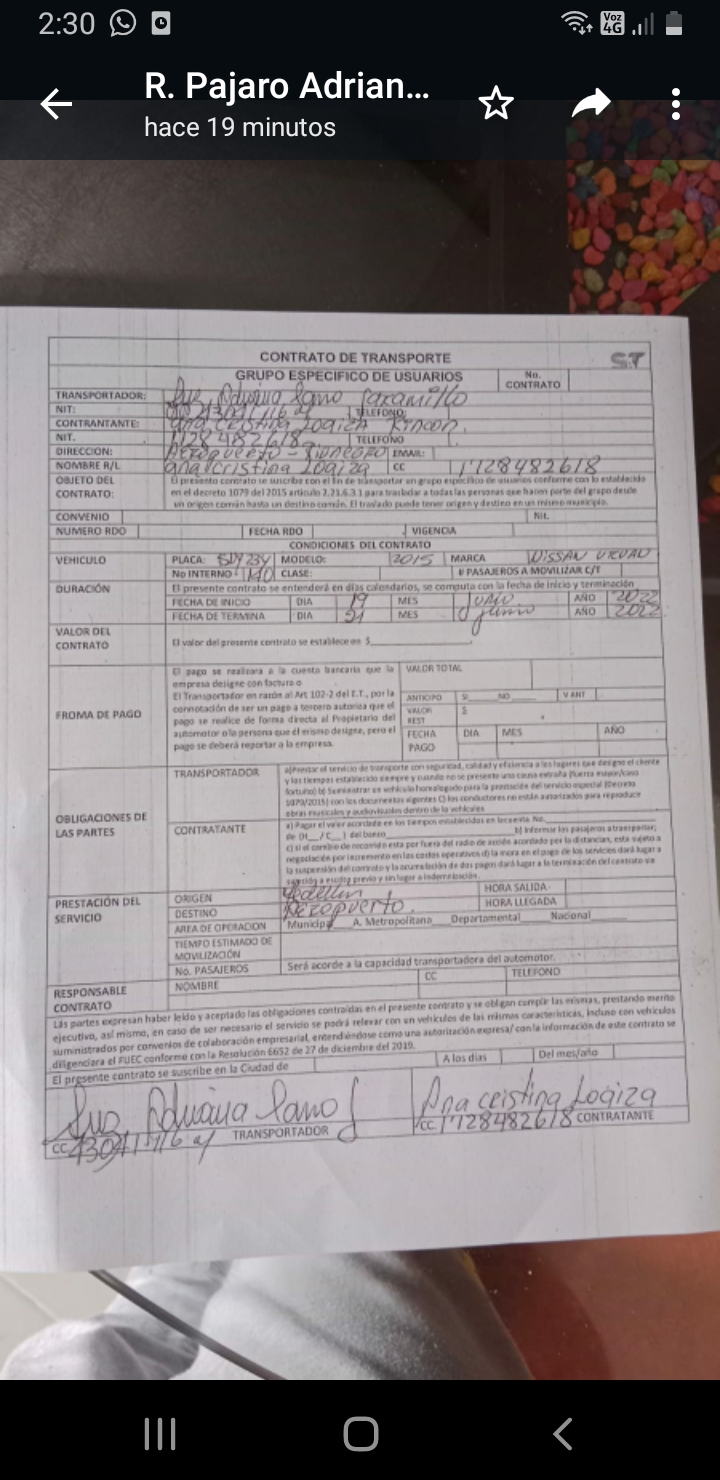 2:30
Voz 4G
R. Pajaro Adrian...
hace 19 minutos
CONTRATO DE TRANSPORTE
ST
GRUPO ESPECIFICO DE USUARIOS
No. CONTRATO
TRANSPORTADOR: Luz Adriana Cano Jaramillo
NIT: TELEFONO:
CONTRANTANTE: ana cristina Logiza Rincon.
NIT. 1'128 482618 TELEFONO
DIRECCION: Aeropuerto - Rionegro EMAIL:
NOMBRE R/L ana cristina Logiza CC 1'128482618
OBJETO DEL CONTRATO: El presente contrato se suscribe con el fin de transportar un grupo especifico de usuarios conforme con lo establecido
en el decreto 1079 del 2015 articulo 2,21.6.3.1 para trasladar a todas las personas que hacen parte del grupo desde
un origen común hasta un destino común. El traslado puede tener origen y destino en un mismo municipio.
CONVENIO Nit.
NUMERO RDO FECHA RDO VIGENCIA
CONDICIONES DEL CONTRATO
VEHICULO PLACA: MODELO: 2015 MARCA NISSAN URVAN
No INTERNO CLASE: # PASAJEROS A MOVILIZAR C/T
DURACIÓN El presente contrato se entenderá en días calendarios, se computa con la fecha de inicio y terminación
FECHA DE INICIO DIA 19 MES AÑO 2022
FECHA DE TERMINA DIA 21 MES Junio AÑO 2022
VALOR DEL CONTRATO El valor del presente contrato se establece en $
FROMA DE PAGO
El pago se realizara a la cuenta bancaria que la
empresa designe con factura o
El Transportador en razón al Art 102-2 del E.T., por la
connotación de ser un pago a tercero autoriza que el
pago se realice de forma directa al Propietario del
automotor o la persona que él mismo designe, pero el
pago se deberá reportar a la empresa.
VALOR TOTAL
ANTICIPO SI NO V ANT
VALOR REST $
FECHA PAGO DIA MES AÑO
OBLIGACIONES DE LAS PARTES
TRANSPORTADOR
a)Prestar el servicio de transporte con seguridad, calidad y eficiencia a los lugares que designe el cliente
y los tiempos establecido siempre y cuando no se presente una causa extraña (fuerza mayor/caso
fortuito) b) Suministrar un vehículo homologado para la prestación del servicio especial (Decreto
1079/2015) con los documentos vigentes C) los conductores no están autorizados para reproduce
obras musicales y audiovisuales dentro de la vehículos
CONTRATANTE
a) Pagar el valor acordado en los tiempos establecidos en la cuenta No.
de D(__/ C__) del banco b) Informar los pasajeros a transportar;
c) si el cambio de recorrido esta por fuera del radio de acción acordado por la distancian, esta sujeto a
negociación por incremento en los costos operativos d) la mora en el pago de los servicios dará lugar a
la suspensión del contrato y la acumulación de dos pagos dará lugar a la terminación del contrato
PRESTACIÓN DEL SERVICIO
ORIGEN Medellin HORA SALIDA
DESTINO Aeropuerto. HORA LLEGADA
AREA DE OPERACION Municip A. Metropolitana Departamental Nacional
TIEMPO ESTIMADO DE MOVILIZACIÓN
No. PASAJEROS Será acorde a la capacidad transportadora del automotor.
RESPONSABLE CONTRATO NOMBRE CC TELEFONO
Lás partes expresan haber leído y aceptado las obligaciones contraídas en el presente contrato y se obligan cumplir las mismas, prestando merito
ejecutivo, así mismo, en caso de ser necesario el servicio se podrá relevar con un vehículos de las mismas características, incluso con vehículos
suministrados por convenios de colaboración empresarial, entendiéndose como una autorización expresa/ con la información de este contrato se
diligenciara el FUEC conforme con la Resolución 6652 de 27 de diciembre del 2019.
El presente contrato se suscribe en la Ciudad de A los días Del mes/año
Luz Adriana Cano J
Ana cristina Logiza
CC TRANSPORTADOR
CC 1'128482618 CONTRATANTE